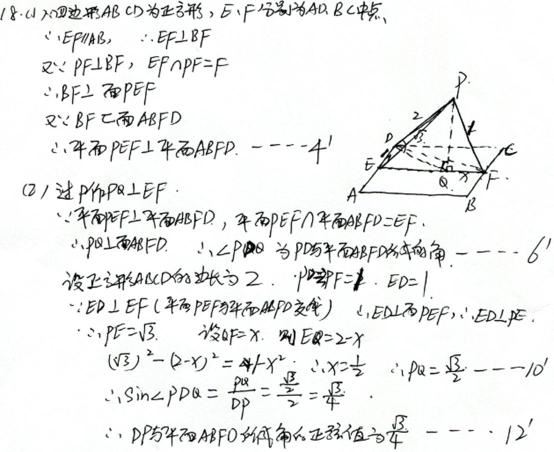 18.(1)∵四边形ABCD为正方形,E、F分别为AD、BC中点
∴EF∥AB, ∴EF⊥BF
又∵PF⊥BF, EF∩PF=F
∴BF⊥面PEF
又∵BF⊂面ABFD
∴平面PEF⊥平面ABFD. ----4'
(2)过P作PQ⊥EF.
∵平面PEF⊥平面ABFD,平面PEF∩平面ABFD=EF.
∴PQ⊥面ABFD. ∴∠PDQ为PD与平面ABFD所成的角.----6'
设正方形ABCD的边长为2. PF=1. ED=1
∵ED⊥EF(平面PEF与平面ABFD交线) ∴ED⊥面PEF,∴ED⊥PE.
∴PE=√3. 设QF=x. 则EQ=2-x
(√3)²-(2-x)²=1-x² ∴x=1/2 ∴PQ=√3/2----10'
∴sin∠PDQ=PQ/DP=(√3/2)/2=√3/4.
∴DP与平面ABFD所成角的正弦值为√3/4 ----12'
P
2
√3
1
D
C
E
Q
x
F
A
B